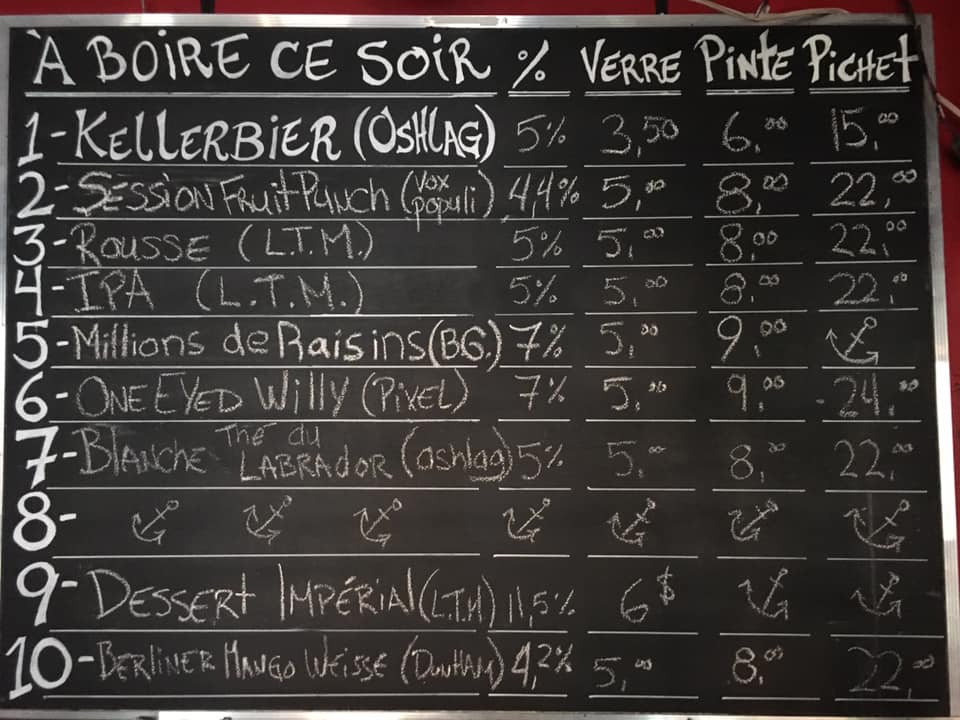 À BOIRE CE SOIR % VERRE PINTE PICHET
1-KELLERBIER (OSHLAG) 5% 3,50 6,00 15,00
2-SESSION FRUIT PUNCH (Vox populi) 4,4% 5,00 8,00 22,00
3-ROUSSE (L.T.M.) 5% 5,00 8,00 22,00
4-IPA (L.T.M.) 5% 5,00 8,00 22,00
5-Millions de Raisins (BG.) 7% 5,00 9,00
6-ONE EYED Willy (Pixel) 7% 5,00 9,00 24,00
7-Blanche Thé du LABRADOR (oshlag) 5% 5,00 8,00 22,00
8-
9-DESSERT IMPÉRIAL (L.T.M) 11,5% 6$
10-BERLINER MANGO WEISSE (DUNHAM) 4,2% 5,00 8,00 22,00